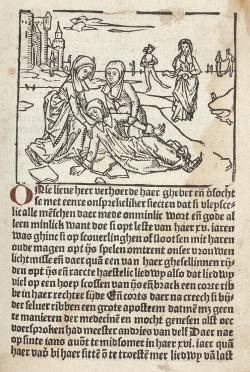 Onse lieue heer verhoerde haer ghebet en̄ besocht
se met eenre onsprekeliker siecten dat si vleysce-
lic alle menschen daer mede onminlic wort en̄ gode al
leen minlick want doe si opt leste van haer xv. iaren
was ghinc si op scouerlinghen of sloten mit haren
oude magen opt ijs spelen omtrent onser vrouwen
lichtmisse en̄ daer quā een van haer ghesellinnen rij
den opt ijs en̄ raecte haestelic liedwy also dat liedwy
viel op een hoep scossen van ijs en̄ brack een corte rib
be in haer rechter side En̄ corts daer na creech si bij
der seluer ribben een grote aposteem dat mē mz geen
re manieren der medecinē en mocht genesen alst oec
voersproken had meester andries van delf Daer nae
op sinte ians auōt te midsomer in haer xvi. iaer quā
haer vad̄ bi haer sittē ō te troestē mer liedwy vā last